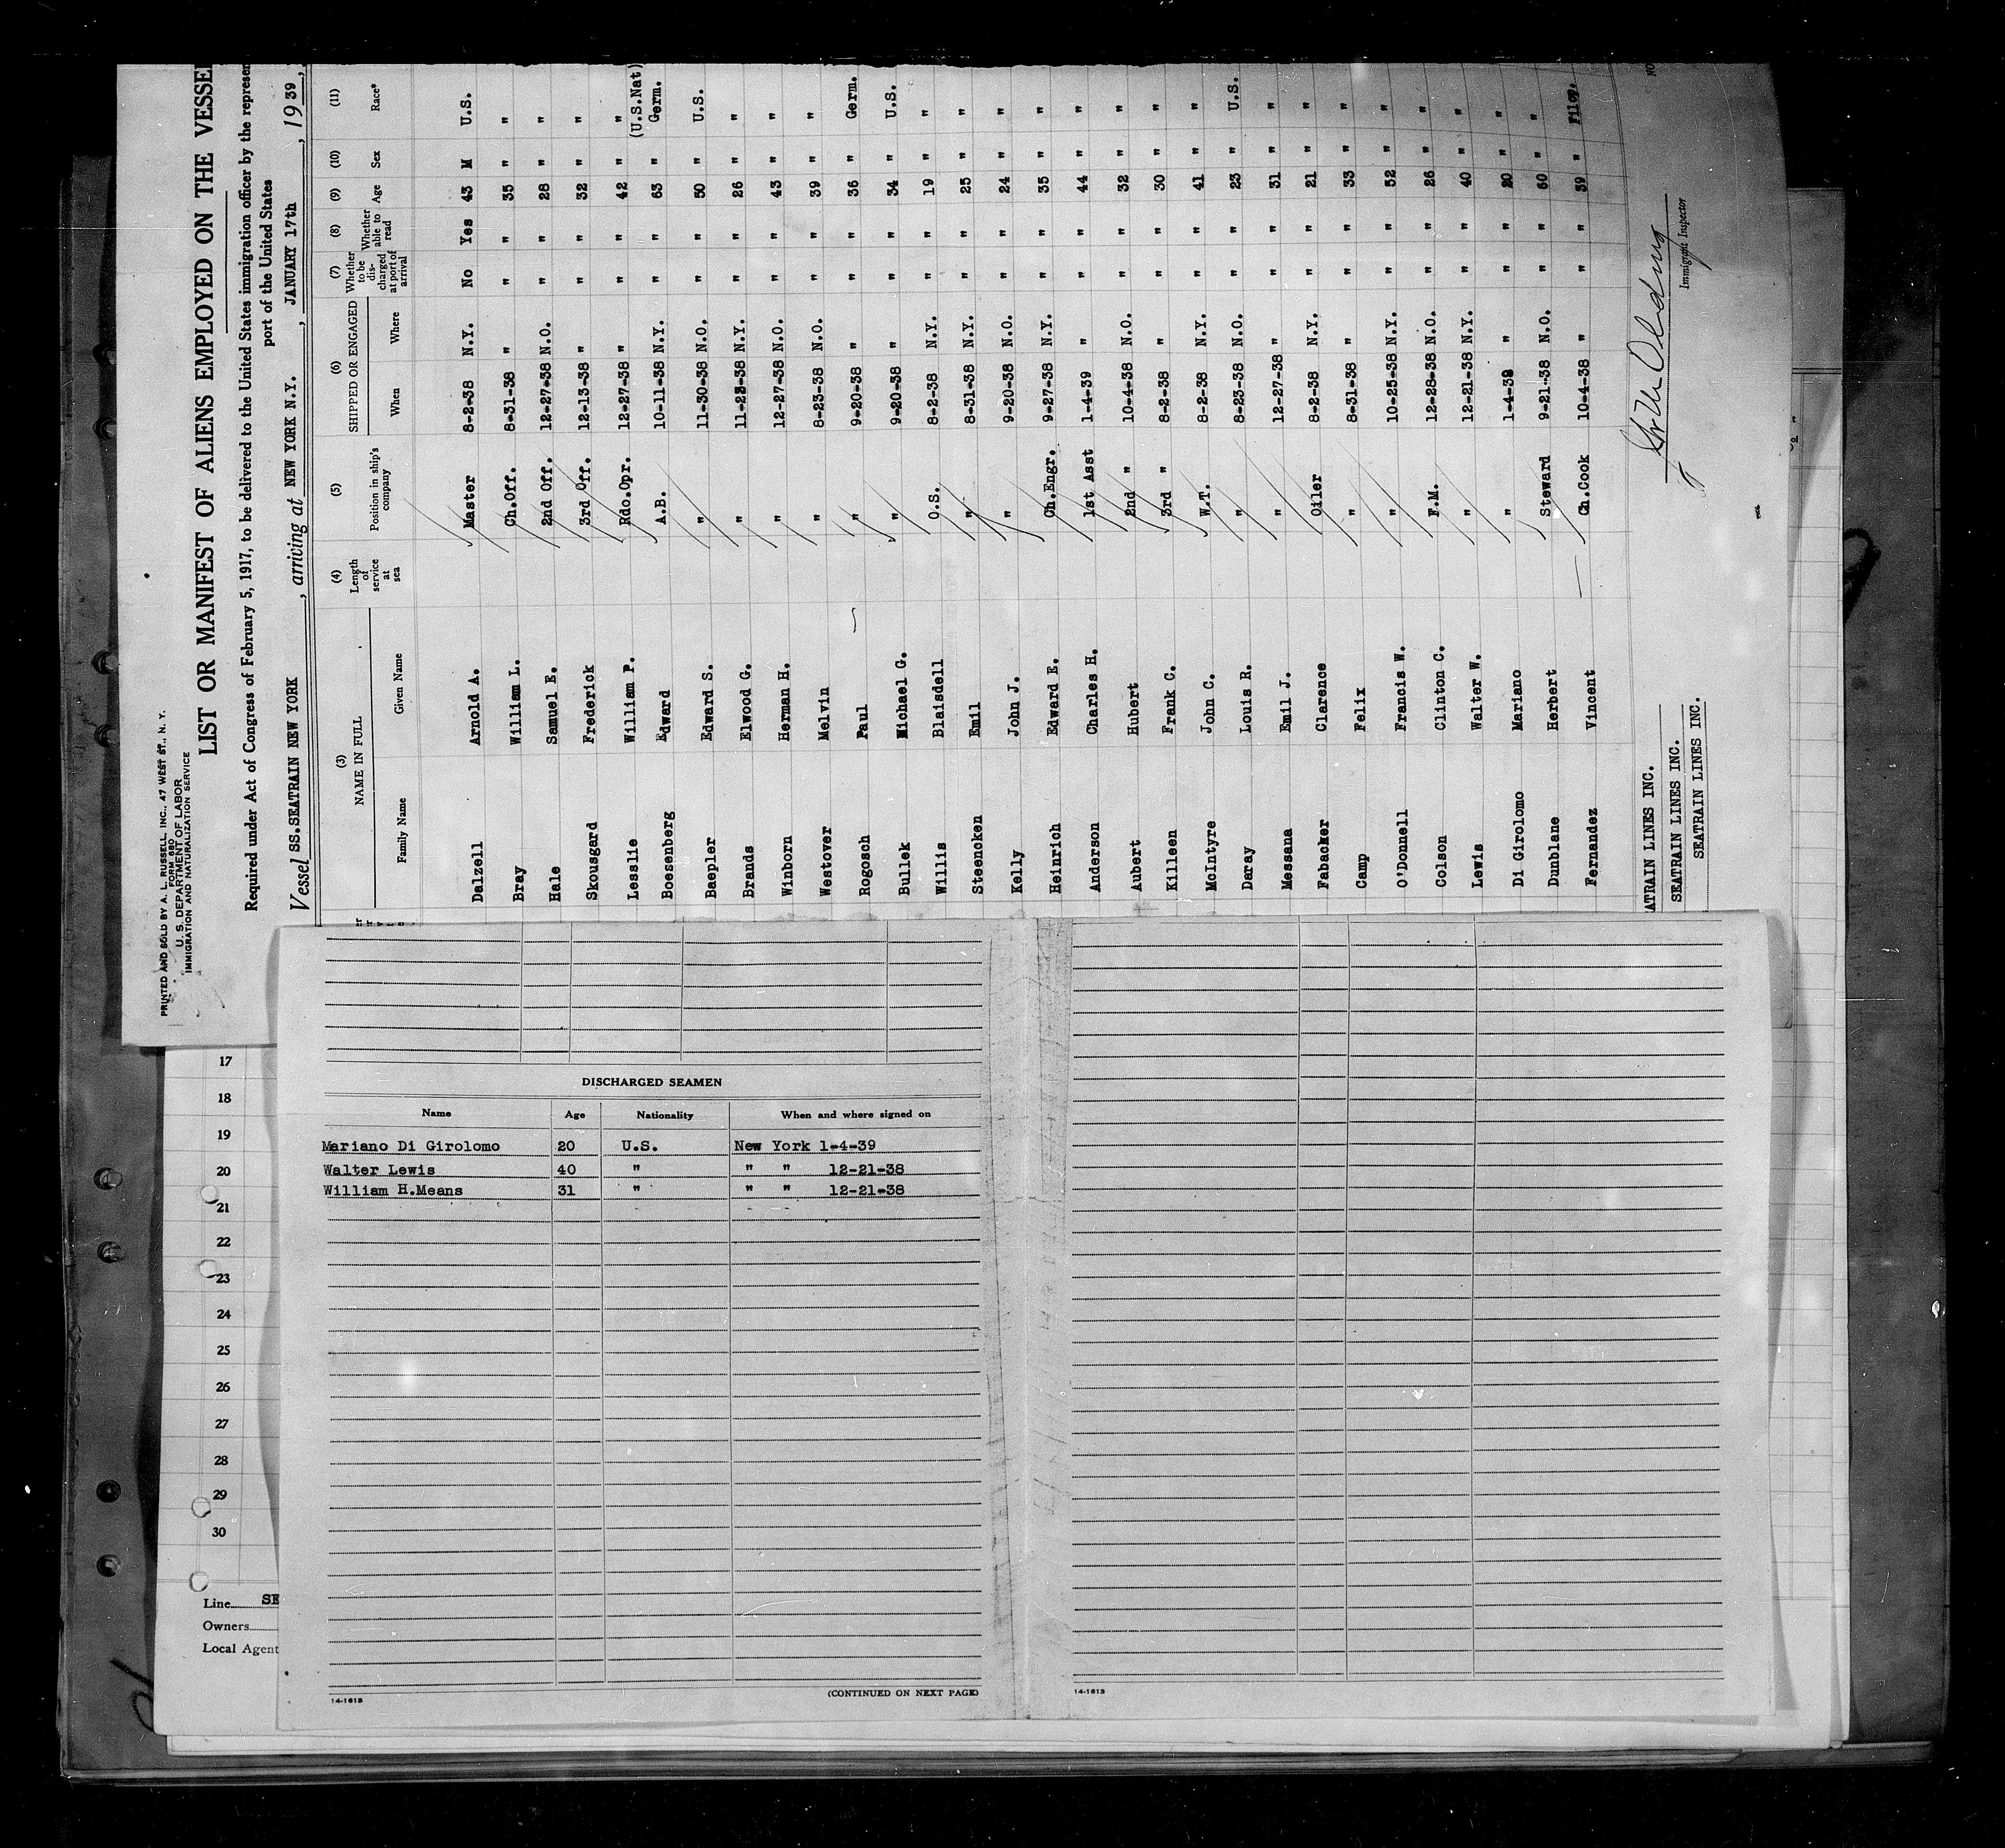 PRINTED AND SOLD BY A. L. RUSSELL, INC., 47 WEST ST., N. Y.
FORM 680
U. S. DEPARTMENT OF LABOR
IMMIGRATION AND NATURALIZATION SERVICE
LIST OR MANIFEST OF ALIENS EMPLOYED ON THE VESSEL
Required under Act of Congress of February 5, 1917, to be delivered to the United States immigration officer by the represen
port of the United States
Vessel SS.SEATRAIN NEW YORK, arriving at NEW YORK N.Y., JANUARY 17th, 1939,
(3) NAME IN FULL Family Name Given Name (4) Length of service at sea (5) Position in ship's company (6) SHIPPED OR ENGAGED When Where (7) Whether to be discharged at port of arrival (8) Whether able to read (9) Age (10) Sex (11) Race*
Dalzell Arnold A. Master 8-2-38 N.Y. No Yes 43 M U.S.
Bray William L. Ch.Off. 8-31-38 " " " 35 " "
Hale Samuel E. 2nd Off. 12-27-38 N.O. " " 28 " "
Skousgard Frederick 3rd Off. 12-13-38 " " " 32 " "
Lesslie William P. Rdo.Opr. 12-27-38 " " " 42 " "
Boesenberg Edward A.B. 10-11-38 N.Y. " " 63 " (U.S.Nat) Germ.
Baepler Edward S. " 11-30-38 N.O. " " 50 " U.S.
Brands Elwood G. " 11-23-38 N.Y. " " 26 " "
Winborn Herman H. " 12-27-38 N.O. " " 43 " "
Westover Melvin " 8-23-38 N.O. " " 39 " "
Rogosch Paul " 9-20-38 " " " 36 " Germ.
Bullek Michael G. " 9-20-38 " " " 34 " U.S.
Willis Blaisdell O.S. 8-2-38 N.Y. " " 19 " "
Steencken Emil " 8-31-38 N.Y. " " 25 " "
Kelly John J. " 9-20-38 N.O. " " 24 " "
Heinrich Edward E. Ch.Engr. 9-27-38 N.Y. " " 35 " "
Anderson Charles H. 1st Asst 1-4-39 " " " 44 " "
Aubert Hubert 2nd " 10-4-38 N.O. " " 32 " "
Killeen Frank C. 3rd " 8-2-38 " " " 30 " "
McIntyre John C. W.T. 8-2-38 N.Y. " " 41 " "
Daray Louis R. " 8-23-38 N.O. " " 23 " U.S.
Messana Emil J. " 12-27-38 " " " 31 " "
Fabacker Clarence Oiler 8-2-38 N.Y. " " 21 " "
Camp Felix " 8-31-38 " " " 33 " "
O'Donnell Francis W. " 10-25-38 N.Y. " " 52 " "
Colson Clinton C. F.M. 12-28-38 N.O. " " 26 " "
Lewis Walter W. " 12-21-38 N.Y. " " 40 " "
Di Girolomo Mariano " 1-4-39 " " " 20 " "
Dunblane Herbert Steward 9-21-38 N.O. " " 60 " "
Fernandez Vincent Ch.Cook 10-4-38 " " " 39 " Filop.
ATRAIN LINES INC.
SEATRAIN LINES INC.
SEATRAIN LINES INC.
Immigrant Inspector
NO
17
18
19
20
21
22
23
24
25
26
27
28
29
30
Line SE
Owners
Local Agent
DISCHARGED SEAMEN
Name Age Nationality When and where signed on
Mariano Di Girolomo 20 U.S. New York 1-4-39
Walter Lewis 40 " " " 12-21-38
William H.Means 31 " " " 12-21-38
14-1613 (CONTINUED ON NEXT PAGE)
14-1613